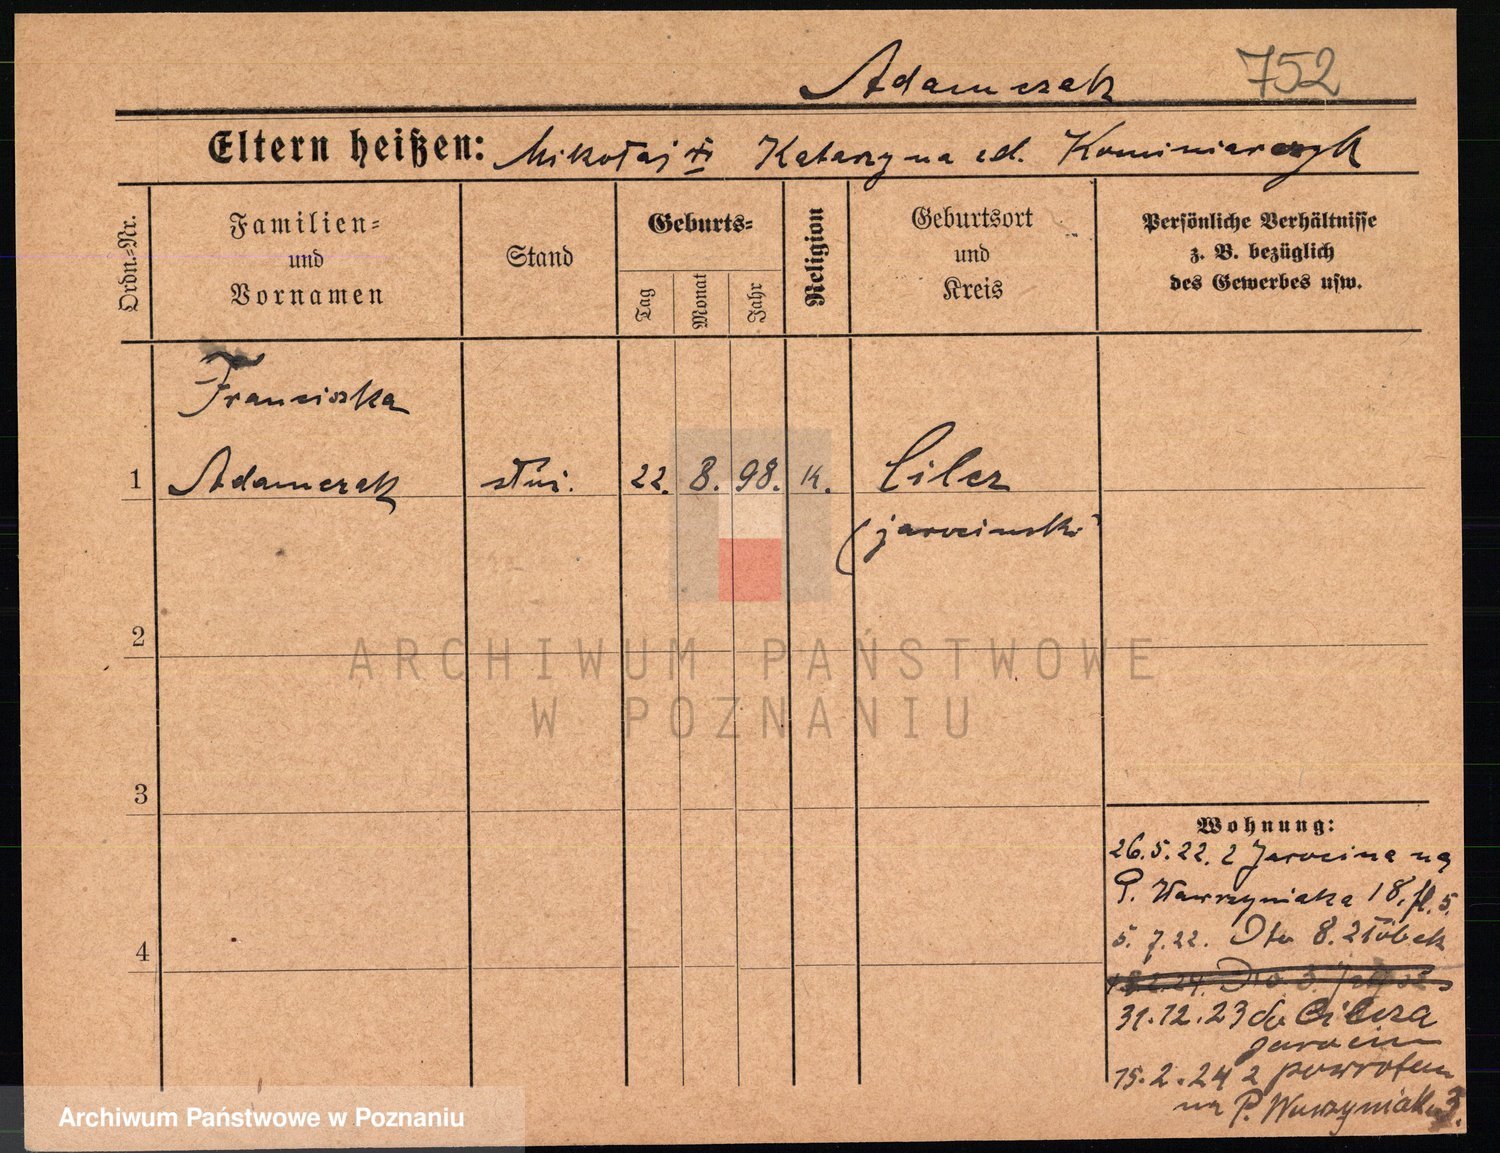 Adamczak 752
Eltern heißen: Mikołaj Katarzyna Kominiarczyk
Ordn.-Nr.
Familien-
und
Vornamen
Stand
Geburts-
Tag
Monat
Jahr
Religion
Geburtsort
und
Kreis
Persönliche Verhältnisse
z. B. bezüglich
des Gewerbes usw.
Franciszka
1 Adamczak służ. 22. 8. 98. k. Cilcz
(jarociński)
2
3
4
Wohnung:
26.5.22. z Jarocina na
P. Wawrzyniaka 18.
5.7.22. Dto 8. Żłóbek
31.12.23 do Cilcza
Jarocin
15.2.24 z powrotem
na P. Wawrzyniaka 3.
ARCHIWUM PAŃSTWOWE
W POZNANIU
Archiwum Państwowe w Poznaniu